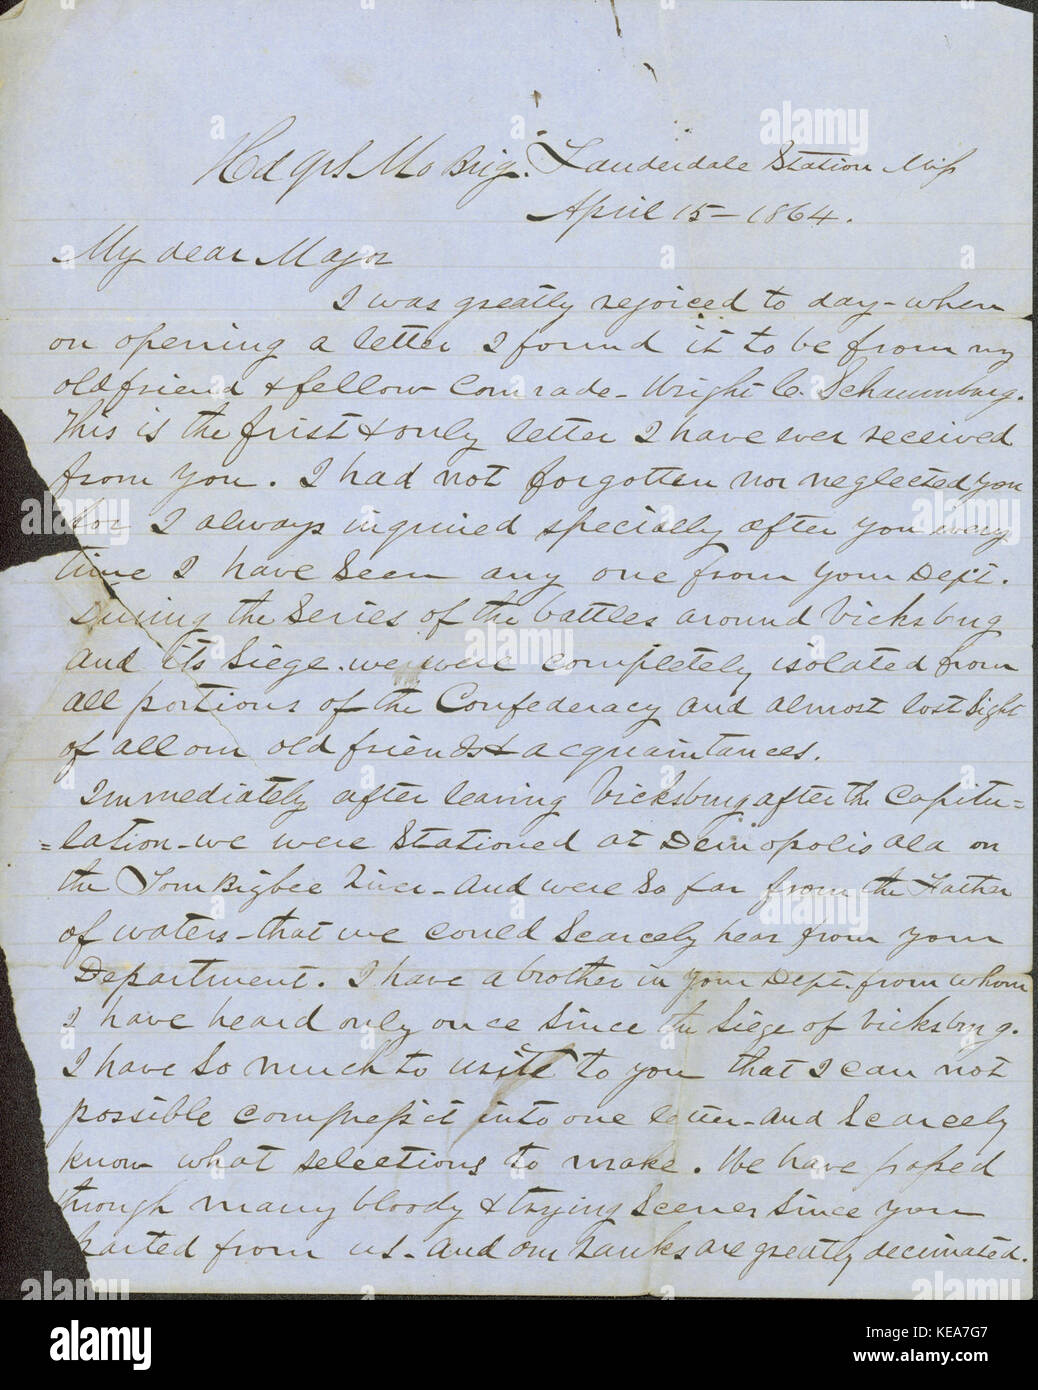 Hd Qrs Mo Brig. Lauderdale Station Miss
April 15 - 1864.
My dear Major
I was greatly rejoiced to day - when
on opening a letter I found it to be from my
old friend & fellow Comrade - Wright C. Schaumburg.
This is the frist & only letter I have ever received
from you. I had not forgotten nor neglected you
for I always inquired specially after you every
time I have Seen any one from your Dept.
During the Series of the battles around Vicksburg
and its Siege. we were completely isolated from
all portions of the Confederacy and almost lost Sight
of all our old friends & acquaintances.
Immediately after leaving Vicksburg after the Capitu=
=lation - we were Stationed at Demopolis Ala on
the TomBigbee River - And were So far from the Father
of waters - that we could Scarcely hear from your
Department. I have a brother in your Dept. from whom
I have heard only once Since the Siege of Vicksburg.
I have So much to write to you that I can not
possible compress it into one letter - and Scarcely
know what selections to make. We have passed
through many bloody & trying Scenes Since you
parted from us - And our ranks are greatly decimated.
alamy
alamy
alamy
alamy
alamy
alamy
alamy
alamy
alamy
Image ID: KEA7G7
www.alamy.com